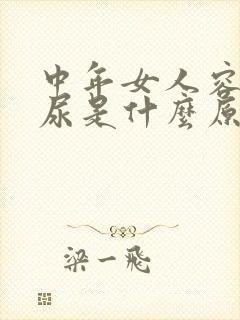 中年女人容
尿是什麼原
梁一飛